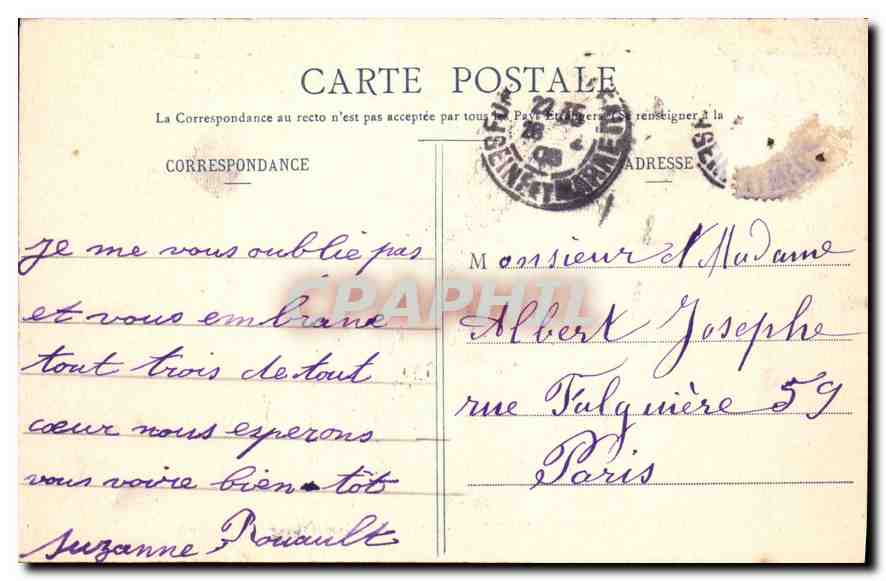 CARTE POSTALE
La Correspondance au recto n'est pas acceptée par tous les Pays Etrangers (Se renseigner à la
CORRESPONDANCE
ADRESSE
22 35
26
08
SEINE ET MARNE
je me vous oublie pas
et vous embrasse
tout trois de tout
cœur nous esperons
vous voire bien-tôt
Suzanne Rouault
Monsieur & Madame
Albert Josephe
rue Falguière 59
Paris
CPAPHIL